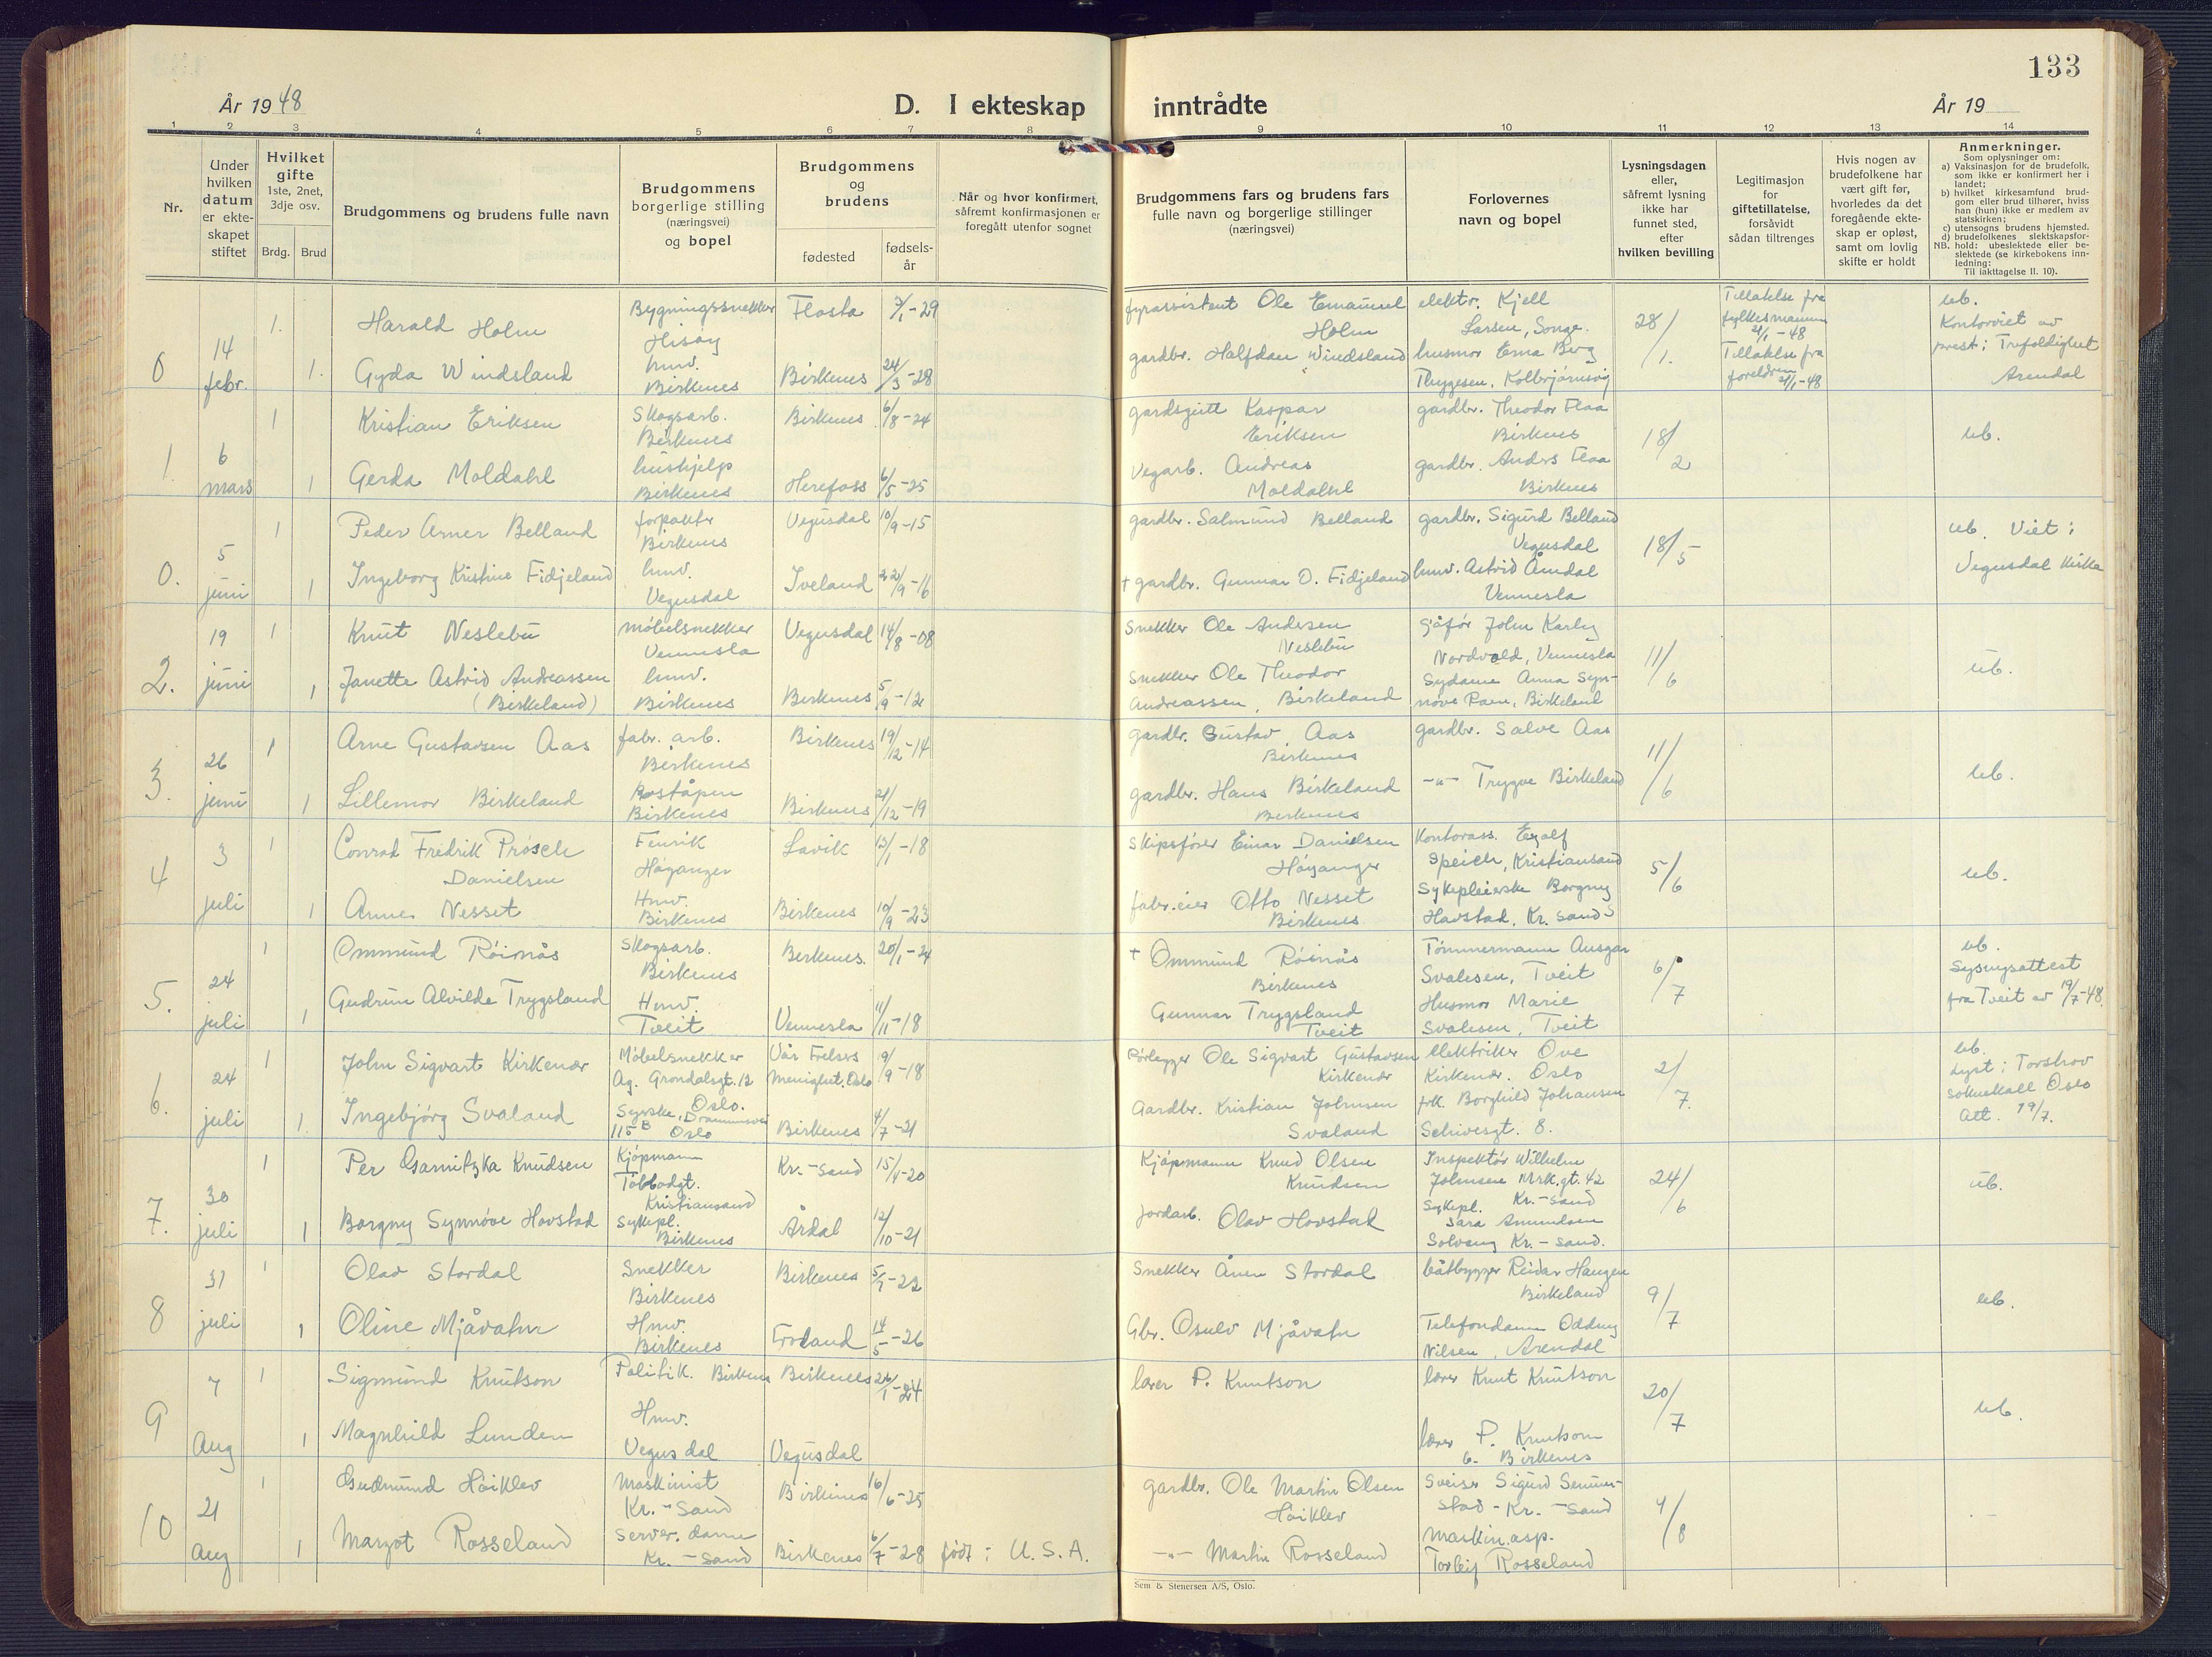 133
År 1948
D. I ekteskap inntrådte
År 19
1 2 3 4 5 6 7 8 9 10 11 12 13 14
Nr.
Under
hvilken
datum
er ekte-
skapet
stiftet
Hvilket
gifte
1ste, 2net,
3dje osv.
Brdg. Brud
Brudgommens og brudens fulle navn
Brudgommens
borgerlige stilling
(næringsvei)
og bopel
Brudgommens
og
brudens
fødested
fødsels-
år
Når og hvor konfirmert,
såfremt konfirmasjonen er
foregått utenfor sognet
Brudgommens fars og brudens fars
fulle navn og borgerlige stillinger
(næringsvei)
Forlovernes
navn og bopel
Lysningsdagen
eller,
såfremt lysning
ikke har
funnet sted,
efter
hvilken bevilling
Legitimasjon
for
giftetillatelse,
forsåvidt
sådan tiltrenges
Hvis nogen av
brudefolkene har
vært gift før,
hvorledes da det
foregående ekte-
skap er opløst,
samt om lovlig
skifte er holdt
Anmerkninger.
Som oplysninger om:
a) Vaksinasjon for de brudefolk,
som ikke er konfirmert her i
landet;
b) hvilket kirkesamfund brud-
gom eller brud tilhører, hviss
han (hun) ikke er medlem av
statskirken;
c) utensogns brudens hjemsted.
d) brudefolkenes slektskapsfor-
NB. hold: ubeslektede eller be-
slektede (se kirkebokens inn-
ledning:
Til iakttagelse II. 10).
0
14
febr.
1.
1.
Harald Holm
Gyda Windsland
Bygningssnekker
Hisøy
hmv.
Birkenes
Flosta 7/1-29
Birkenes 24/3-28
fyrassistent Ole Emanuel
Holm
gardbr. Halfdan Windsland
elektr. Kjell
Larsen, Songe.
husmor Erna Berg
Thygesen, Kolbjørnsvig
28/1.
Tillatelse fra
fylkesmannen
21/1-48
Tillatelse fra
foreldrene 21/1-48
ub.
Kontorviet av
prest i Trefoldighet
Arendal
1
6
mars
1
1
Kristian Eriksen
Gerda Moldahl
Skogsarb.
Birkenes
hushjelp
Birkenes
Birkenes 6/8-24
Herefoss 6/5-25
gardsgutt Kaspar
Eriksen
Vegarb. Andreas
Moldahl
gardbr. Theodor Flaa
Birknes
gardbr. Anders Flaa
Birknes
18/2
ub.
0.
5
juni
1
1
Peder Arner Belland
Ingeborg Kristine Fidjeland
forpakter
Birkenes
hmv.
Vegusdal
Vegusdal 10/9-15
Iveland 22/9-16
gardbr. Salmund Belland
† gardbr. Gunnar O. Fidjeland
gardbr. Sigurd Belland
Vegusdal
hmv. Astrid Åmdal
Vennesla
18/5
ub. Viet i
Vegusdal Kirke
2.
19
juni
1
1
Knut Neslebu
Janette Astrid Andreassen
(Birkeland)
Møbelsnekker
Vennesla
hmv.
Birkenes
Vegusdal 14/8-08
Birkenes 5/9-12
Snekker Ole Andersen
Neslebu
Snekker Ole Theodor
Andreassen, Birkeland
Sjåfør John Karby
Nordvold, Vennesla
Sydame Anna Syn-
nøve Paen, Birkeland
11/6
ub.
3.
26
juni
1
1
Arne Gustavsen Aas
Lillemor Birkeland
fabr. arb.
Birkenes
Poståpn
Birkenes
Birkenes 19/12-14
Birkenes 21/12-19
gardbr. Gustav Aas
Birkenes
gardbr. Hans Birkeland
Birkenes
gardbr. Salve Aas
-"- Trygve Birkeland
11/6
ub.
4
3
juli
1
1
Conrad Fredrik Prøsch
Danielsen
Anne Nesset
Fenrik
Høyanger
Hmv.
Birkenes
Lavik 13/1-18
Birkenes 10/9-23
Skipsfører Einar Danielsen
Høyanger
fabr.eier Otto Nesset
Birkenes
Kontorass. Egolf
Speich, Kristiansand
Sykepleierske Borgny
Hovstad, Kr. sand S
5/6
ub.
5.
24
juli
1
1
Ommund Røinås
Gudrun Alvilde Trygsland
Skogsarb.
Birkenes
Hmv.
Tveit
Birkenes. 20/1-24
Vennesla 11/11-18
† Ommund Røinås
Birkenes
Gunnar Trygsland
Tveit
Tømmermann Ansgar
Svalesen, Tveit
Husmor Marie
Svalesen, Tveit
6/7
ub.
Lysn.attest
fra Tveit av 19/7-48.
6.
24
juli
1
1.
John Sigvart Kirkenær
Ingebjørg Svaland
Møbelsnekker
Ag. Grøndalsgt. 12
Oslo.
Syerske, Drammensvei
115 B Oslo
Vår Frelsers
Menighet, Oslo 19/9-18
Birkenes 4/7-21
Rørlegger Ole Sigvart Gustavsen
Kirkenær
Gardbr. Kristian Johnsen
Svaland
Elektriker Ove
Kirkenær. Oslo
frk. Borghild Johansen
Schivesgt. 8.
2/7.
ub.
Lyst i Torshov
soknekall Oslo
Att. 19/7.
7.
30
juli
1
1
Per Garnitzka Knudsen
Borgny Synnøve Hovstad
Kjøpmann
Tobbodgt.
Kristiansand
Sykepl.
Birkenes
Kr.-sand 15/4-20
Årdal 12/10-21
Kjøpmann Knud Olsen
Knudsen
Jordarb. Olav Hovstad
Inspektør Wilhelm
Johnsen Mrk.gt. 42
Kr.-sand
Sykepl.
Sara Amundsen
Solveng Kr.-sand.
24/6
ub.
8
31
juli
1
1
Olav Stordal
Oline Mjåvatn
Snekker
Birkenes
Hmv.
Birkenes
Birkenes 5/7-22
Froland 14/5-26
Snekker Ånen Stordal
Gbr. Osulv Mjåvatn
båtbygger Reidar Haugen
Birkeland
Telefondame Oddny
Nilsen, Arendal
9/7
ub.
9
7
Aug
1
1
Sigmund Knutson
Magnhild Lunden
Politik. Birkenes
Hmv.
Vegusdal
Birkenes 26/1-24
Vegusdal
lærer P. Knutson
lærer Knut Knutson
lærer P. Knutson
Birkenes
20/7
ub.
10
21
Aug
1
1
Gudmund Høiklev
Margot Rosseland
Maskinist
Kr.-sand
Server. dame
Kr.-sand
Birkenes 16/6-25
Birkenes 6/7-28
født i U.S.A.
gardbr. Ole Martin Olsen
Høiklev
-"- Martin Rosseland
Sveiser Sigurd Senum-
stad - Kr.-sand
maskin.asp.
Torleif Rosseland
4/8
Sem & Stenersen A/S, Oslo.